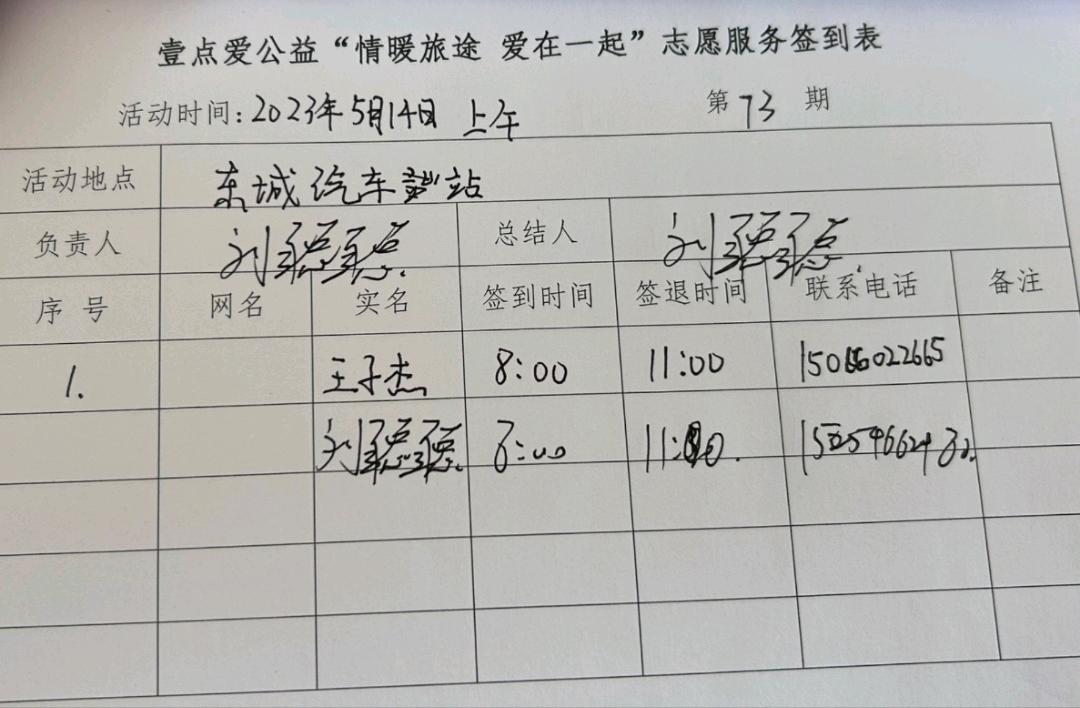 壹点爱公益“情暖旅途 爱在一起”志愿服务签到表
活动时间:2023年5月14日 上午 第73期
活动地点 东城汽车 站
负责人 刘 总结人 刘
序号 网名 实名 签到时间 签退时间 联系电话 备注
1. 王子杰 8:00 11:00
刘 8:00 11:00.